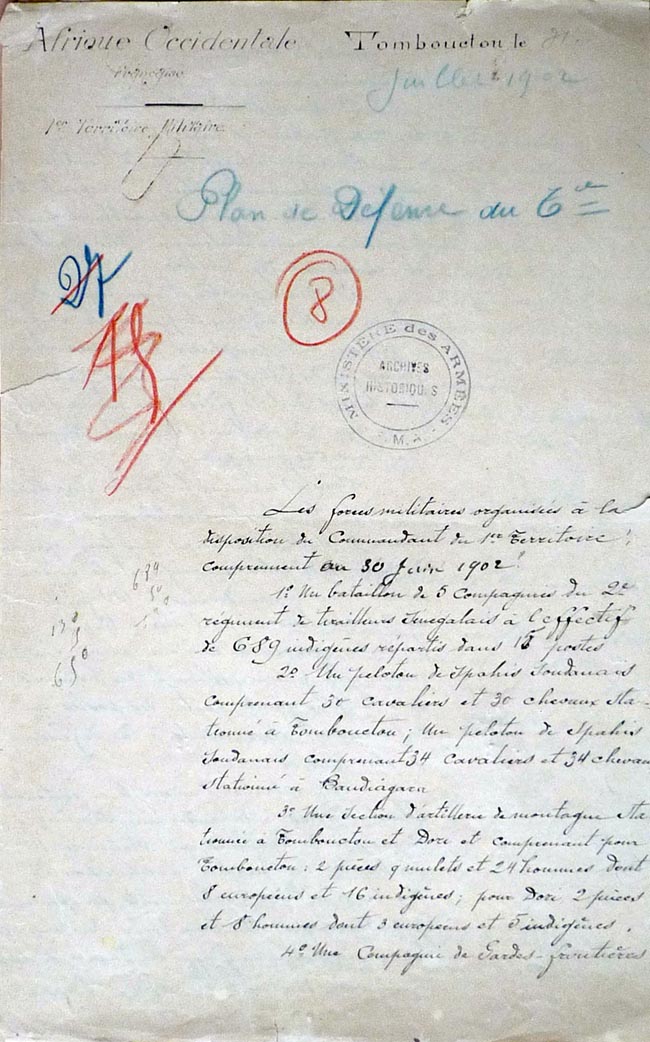 Afrique Occidentale
Tombouctou le 21
Française
Juillet 1902
1er Territoire Militaire
Plan de Défense du Tre
27
8
MINISTERE des ARMEES
ARCHIVES
HISTORIQUES
Les forces militaires organisées à la
disposition du Commandant du 1er Territoire
comprennent au 30 Juin 1902:
1º Un bataillon de 5 Compagnies du 2e
régiment de tirailleurs Senegalais à l'effectif
de 689 indigènes répartis dans 15 postes
2º Un peloton de Spahis Soudanais
comprenant 30 cavaliers et 30 chevaux sta-
tionné à Tombouctou; Un peloton de Spahis
Soudanais comprenant 34 cavaliers et 34 chevau
stationné à Bandiagara
3º Une section d'artillerie de montagne sta
tionnée à Tombouctou et Dori et comprenant pour
Tombouctou: 2 pièces 9 mulets et 24 hommes dont
8 européens et 16 indigènes; pour Dori 2 pièces
et 8 hommes dont 3 européens et 5 indigènes.
4º Une Compagnie de Gardes-frontières